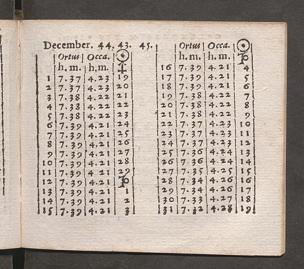 December. 44. 43. 45.
Ortus Occa. ☉
h. m. h. m.
1 7.37 4.23 19
2 7.37 4.23 20
3 7.38 4.22 21
4 7.38 4.22 22
5 7.38 4.22 23
6 7.39 4.21 24
7 7.39 4.21 25
8 7.39 4.21 26
9 7.39 4.21 27
10 7.39 4.21 28
11 7.39 4.21 29
12 7.39 4.21 ♑
13 7.39 4.21 1
14 7.39 4.21 2
15 7.39 4.21 3
Ortus Occa. ☉
h. m. h. m. ♑
16 7.39 4.21 4
17 7.39 4.21 5
18 7.39 4.21 6
19 7.38 4.22 7
20 7.38 4.22 8
21 7.38 4.22 9
22 7.38 4.22 10
23 7.37 4.23 11
24 7.37 4.23 12
25 7.36 4.24 13
26 7.36 4.24 14
27 7.35 4.25 15
28 7.34 4.26 16
29 7.34 4.26 17
30 7.33 4.27 18
31 7.32 4.28 19